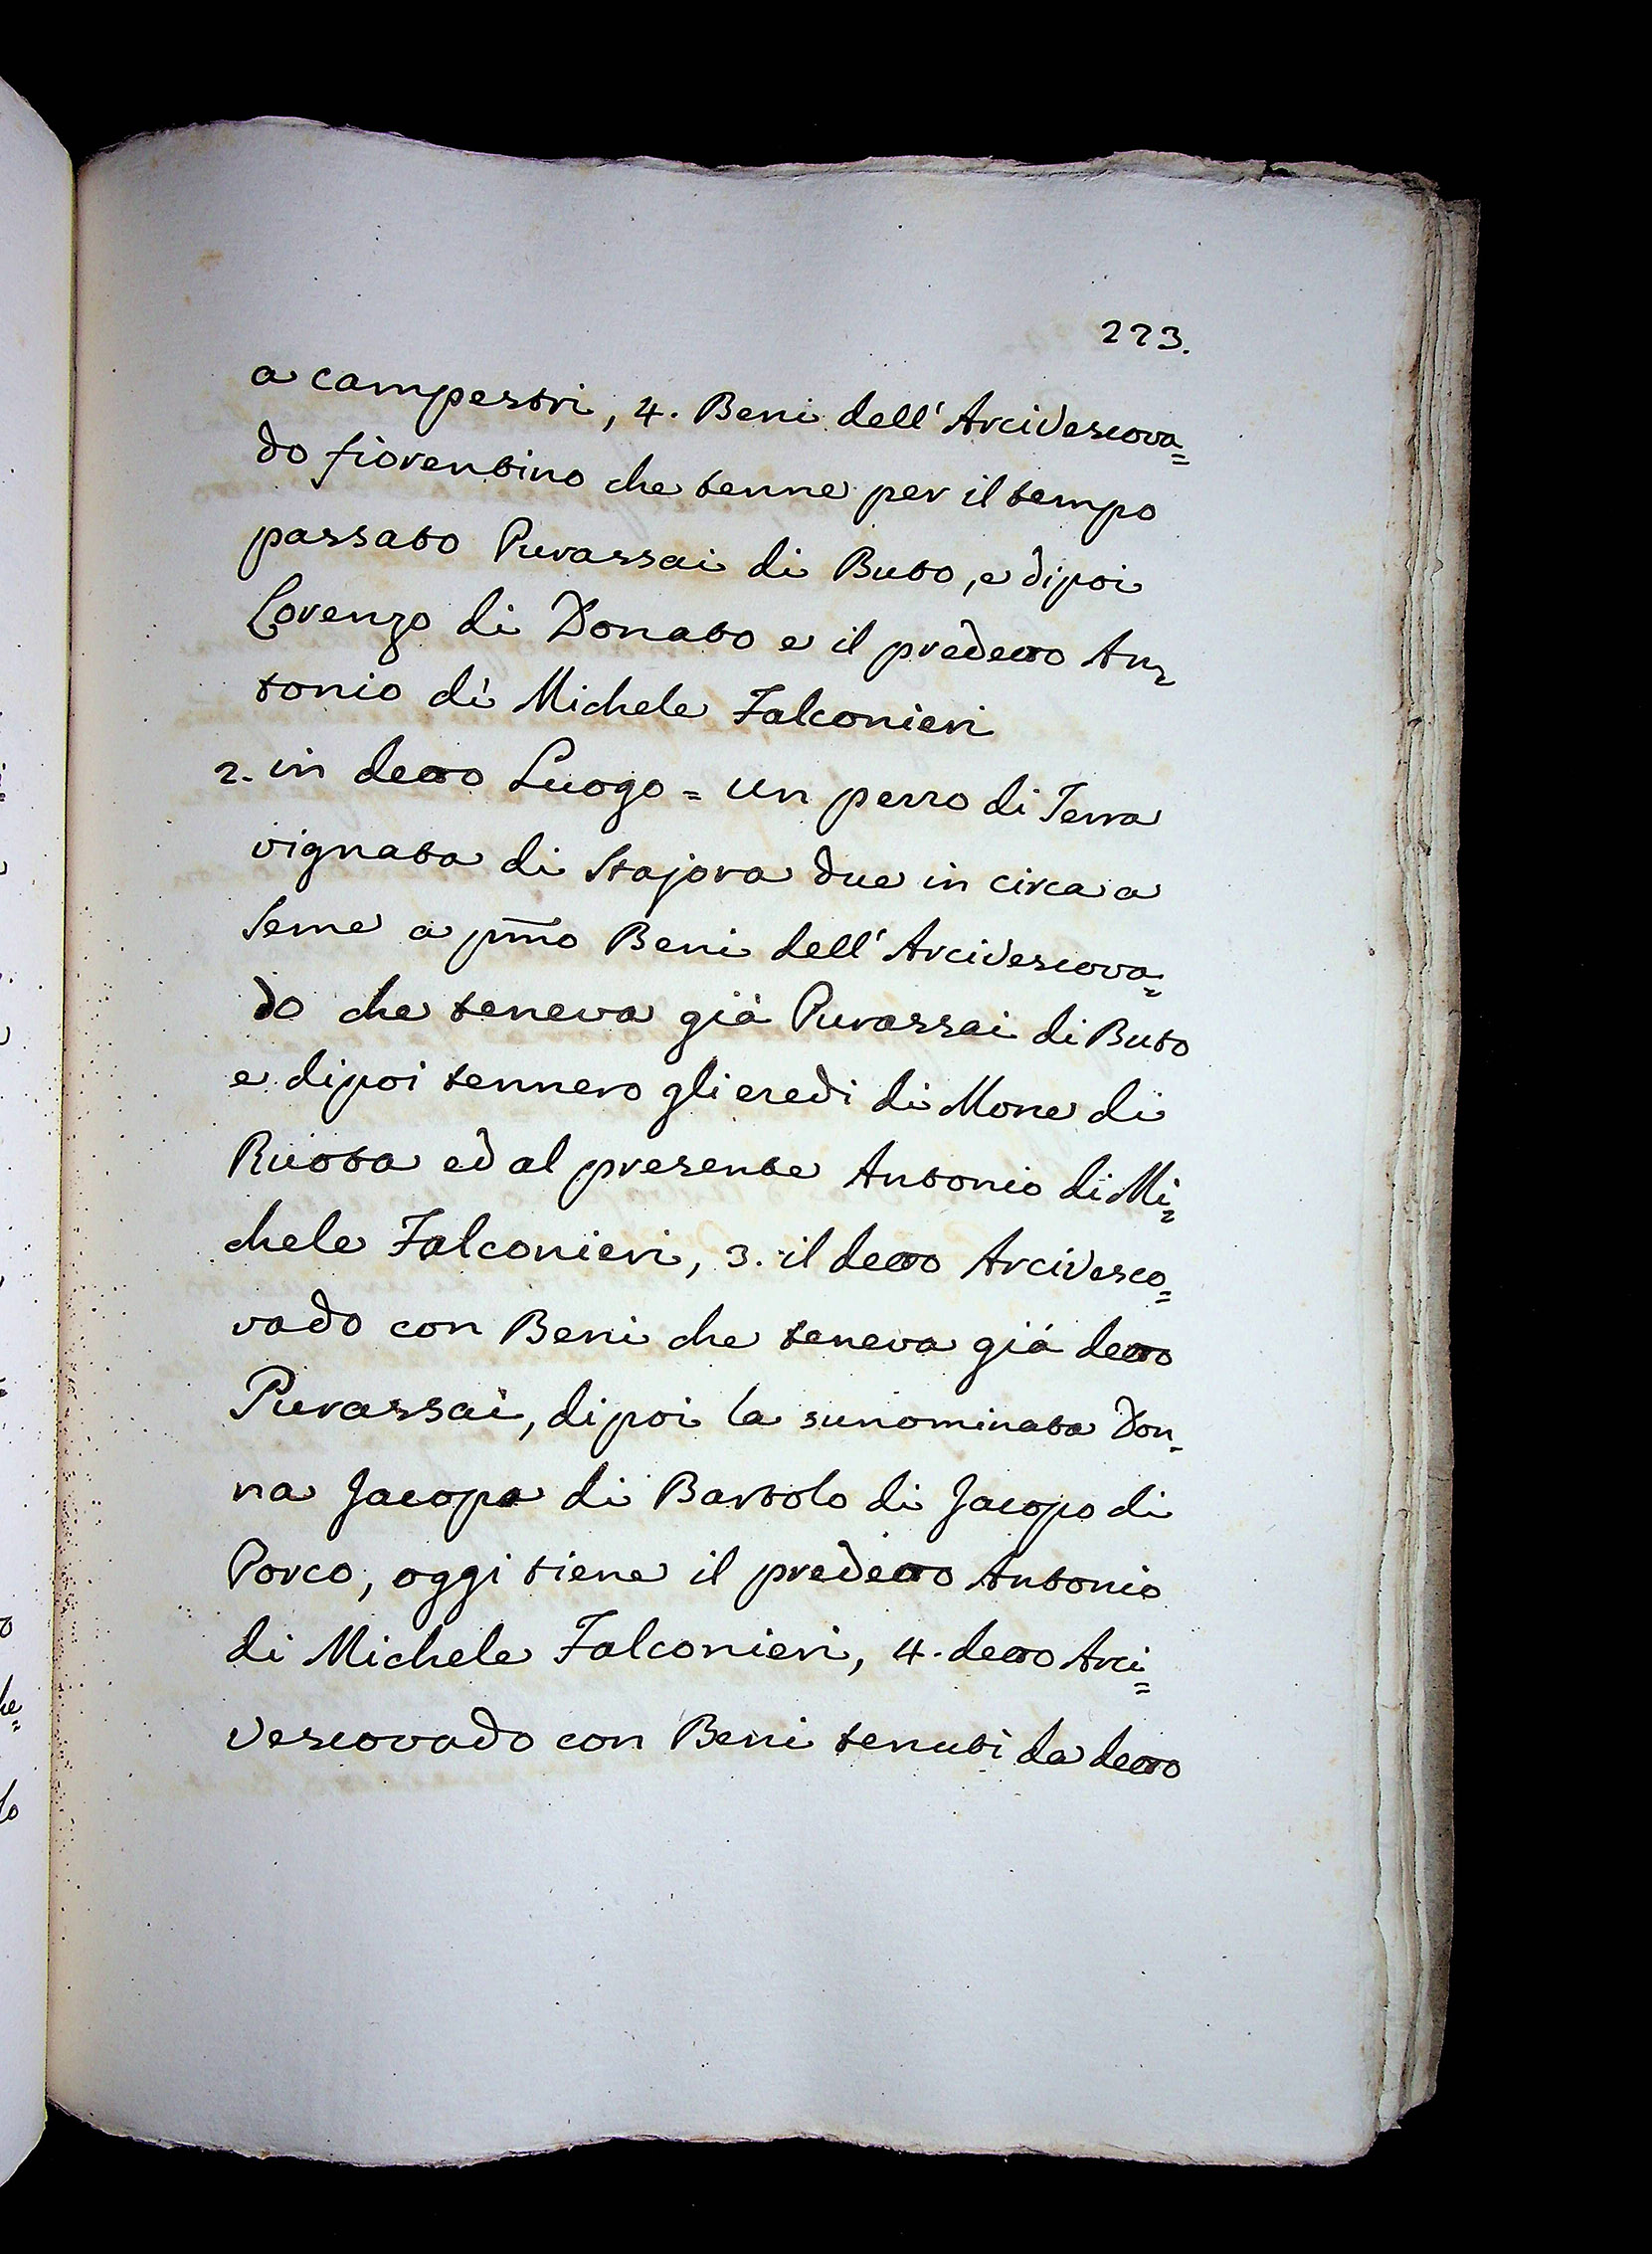 223.
a campestri, 4. Beni dell'Arcivescova=
do fiorentino che tenne per il tempo
passato Purassai di Buto, e dipoi
Lorenzo di Donato e il predetto An=
tonio di Michele Falconieri
2. in detto Luogo = un pezzo di Terra
vignata di Stajora due in circa a
seme a pmo Beni dell'Arcivescova=
do che teneva già Purassai di Buto
e dipoi tennero gli eredi di Mone di
Ruota ed al presente Antonio di Mi=
chele Falconieri, 3. il detto Arcivesco=
vado con Beni che teneva già detto
Purassai, dipoi la sunominata Don=
na Jacopa di Bartolo di Jacopo di
Porco, oggi tiene il predetto Antonio
di Michele Falconieri, 4. detto Arci=
vescovado con Beni tenuti da detto